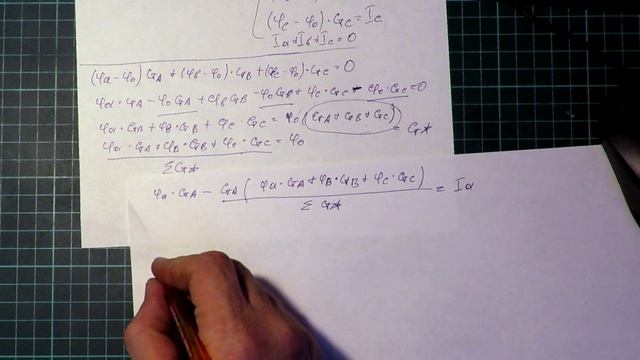 (φc - φ0)·Gc = Ic
Ia+Ib+Ic = 0
(φa - φ0) GA + (φb - φ0)·GB + (φc - φ0)·Gc = 0
φa·GA - φ0 GA + φB GB - φ0 GB + φc·Gc - φ0·Gc = 0
φa·GA + φB·GB + φc·Gc = φ0 (GA + GB + Gc) = G*
φa·GA + φB·GB + φc·Gc = φ0
ΣG*
φa·GA - GA ( φa·GA + φB·GB + φc·Gc ) = Ia
Σ G*